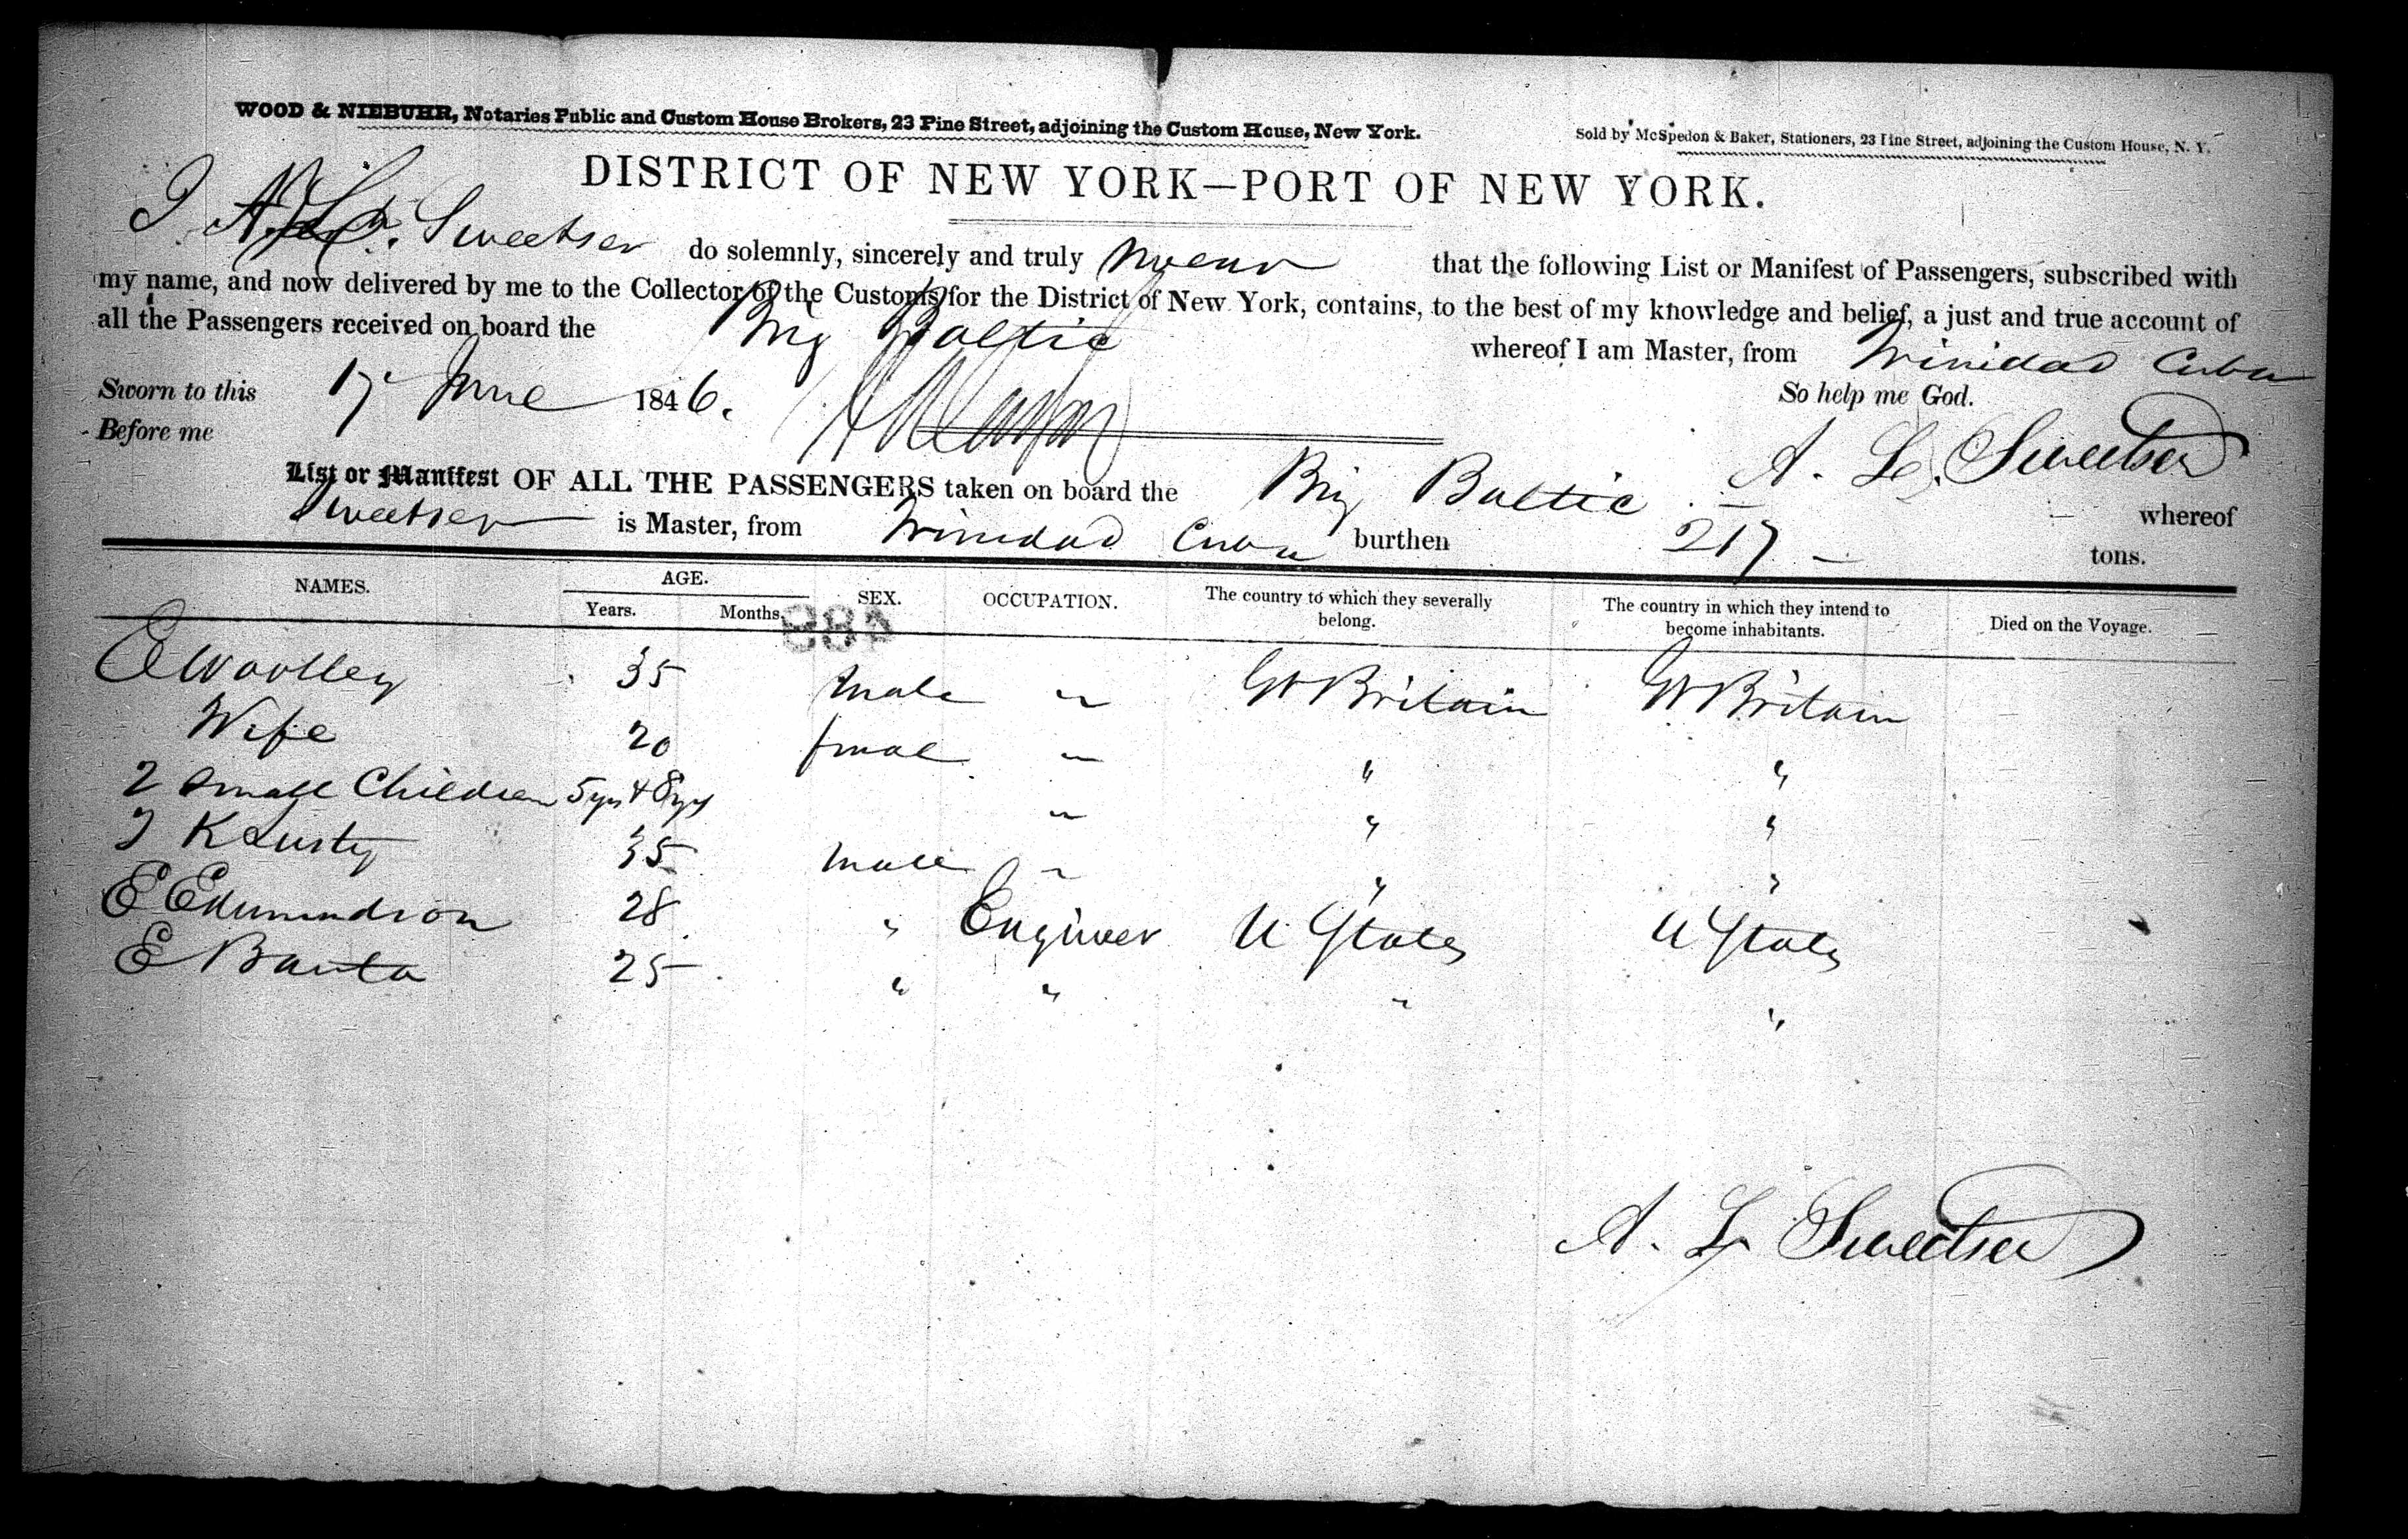 WOOD & NIEBUHR, Notaries Public and Custom House Brokers, 23 Pine Street, adjoining the Custom House, New York.
Sold by McSpedon & Baker, Stationers, 23 Pine Street, adjoining the Custom House, N. Y.
DISTRICT OF NEW YORK—PORT OF NEW YORK.
I A. L. Sweetser do solemnly, sincerely and truly swear that the following List or Manifest of Passengers, subscribed with
my name, and now delivered by me to the Collector of the Customs for the District of New York, contains, to the best of my knowledge and belief, a just and true account of
all the Passengers received on board the Brig Baltic whereof I am Master, from Trinidad Cuba
Sworn to this 17 June 1846. So help me God.
Before me A. L. Sweetser
List or Manifest OF ALL THE PASSENGERS taken on board the Brig Baltic whereof
Sweetser is Master, from Trinidad Cuba burthen 217 tons.
NAMES. AGE. Years. Months. SEX. OCCUPATION. The country to which they severally belong. The country in which they intend to become inhabitants. Died on the Voyage.
484
E Woolley 35 male " Gt Britain Gt Britain
Wife 20 fmal " " "
2 small Children 5 yrs & 8 yrs " " "
35 male " " "
E Edmundson 28 " Engineer U States U States
E Banta 25 " " " "
A. L. Sweetser